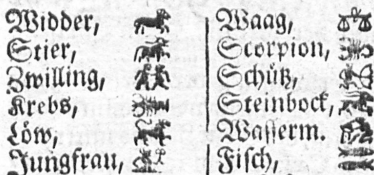 Widder,
Stier,
Zwilling,
Krebs,
Löw,
Jungfrau,
Waag,
Scorpion,
Schütz,
Steinbock,
Wasserm.
Fisch,